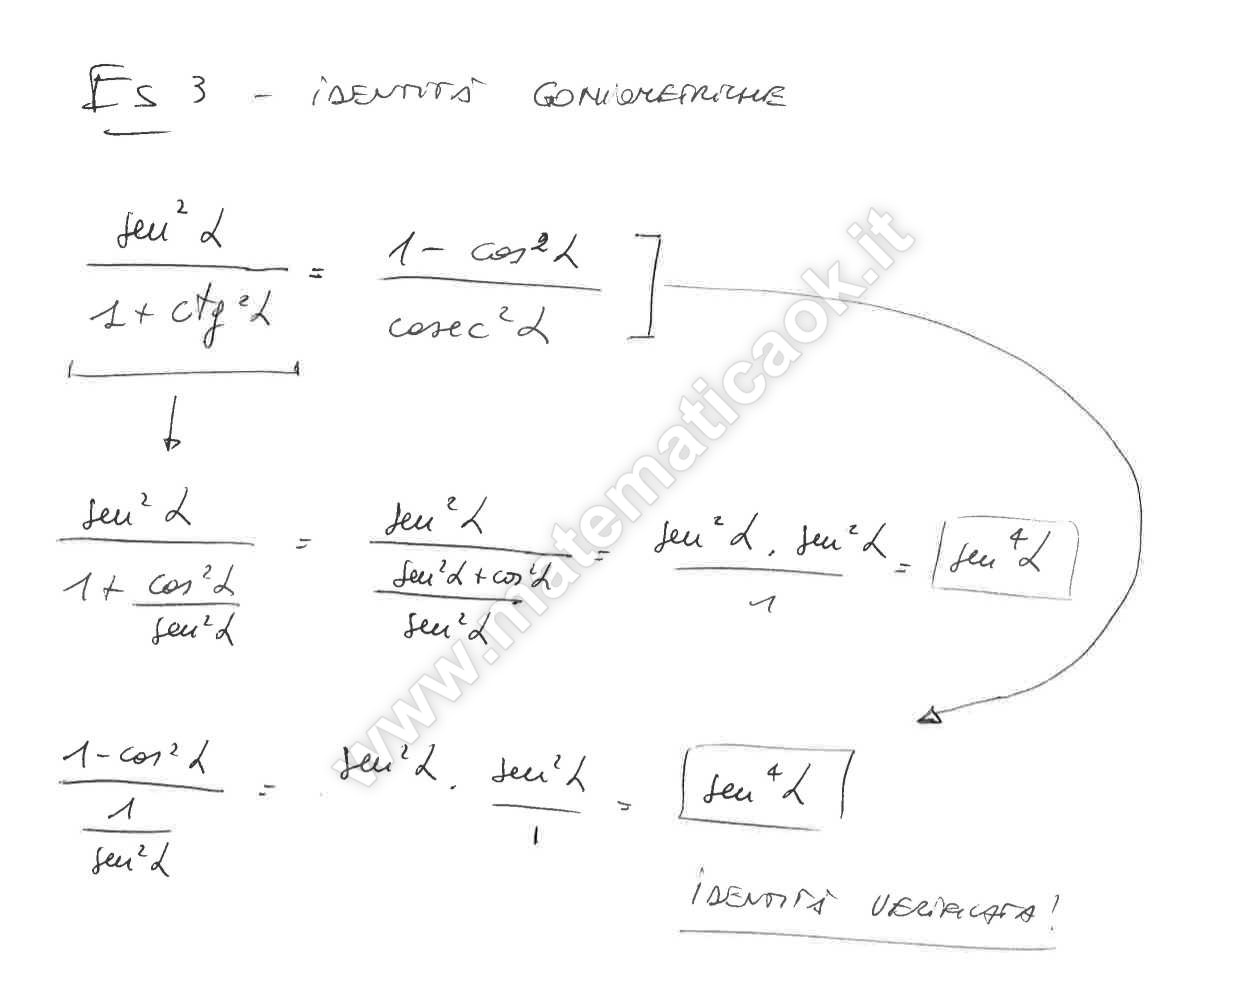 Es 3 - IDENTITÀ GONIOMETRICHE
sen²α / (1 + ctg²α) = (1 - cos²α) / cosec²α ]
sen²α / (1 + cos²α/sen²α) = sen²α / ((sen²α + cos²α)/sen²α) = (sen²α . sen²α) / 1 = sen⁴α
(1 - cos²α) / (1/sen²α) = sen²α . sen²α / 1 = sen⁴α
IDENTITÀ VERIFICATA!
www.matematicaok.it